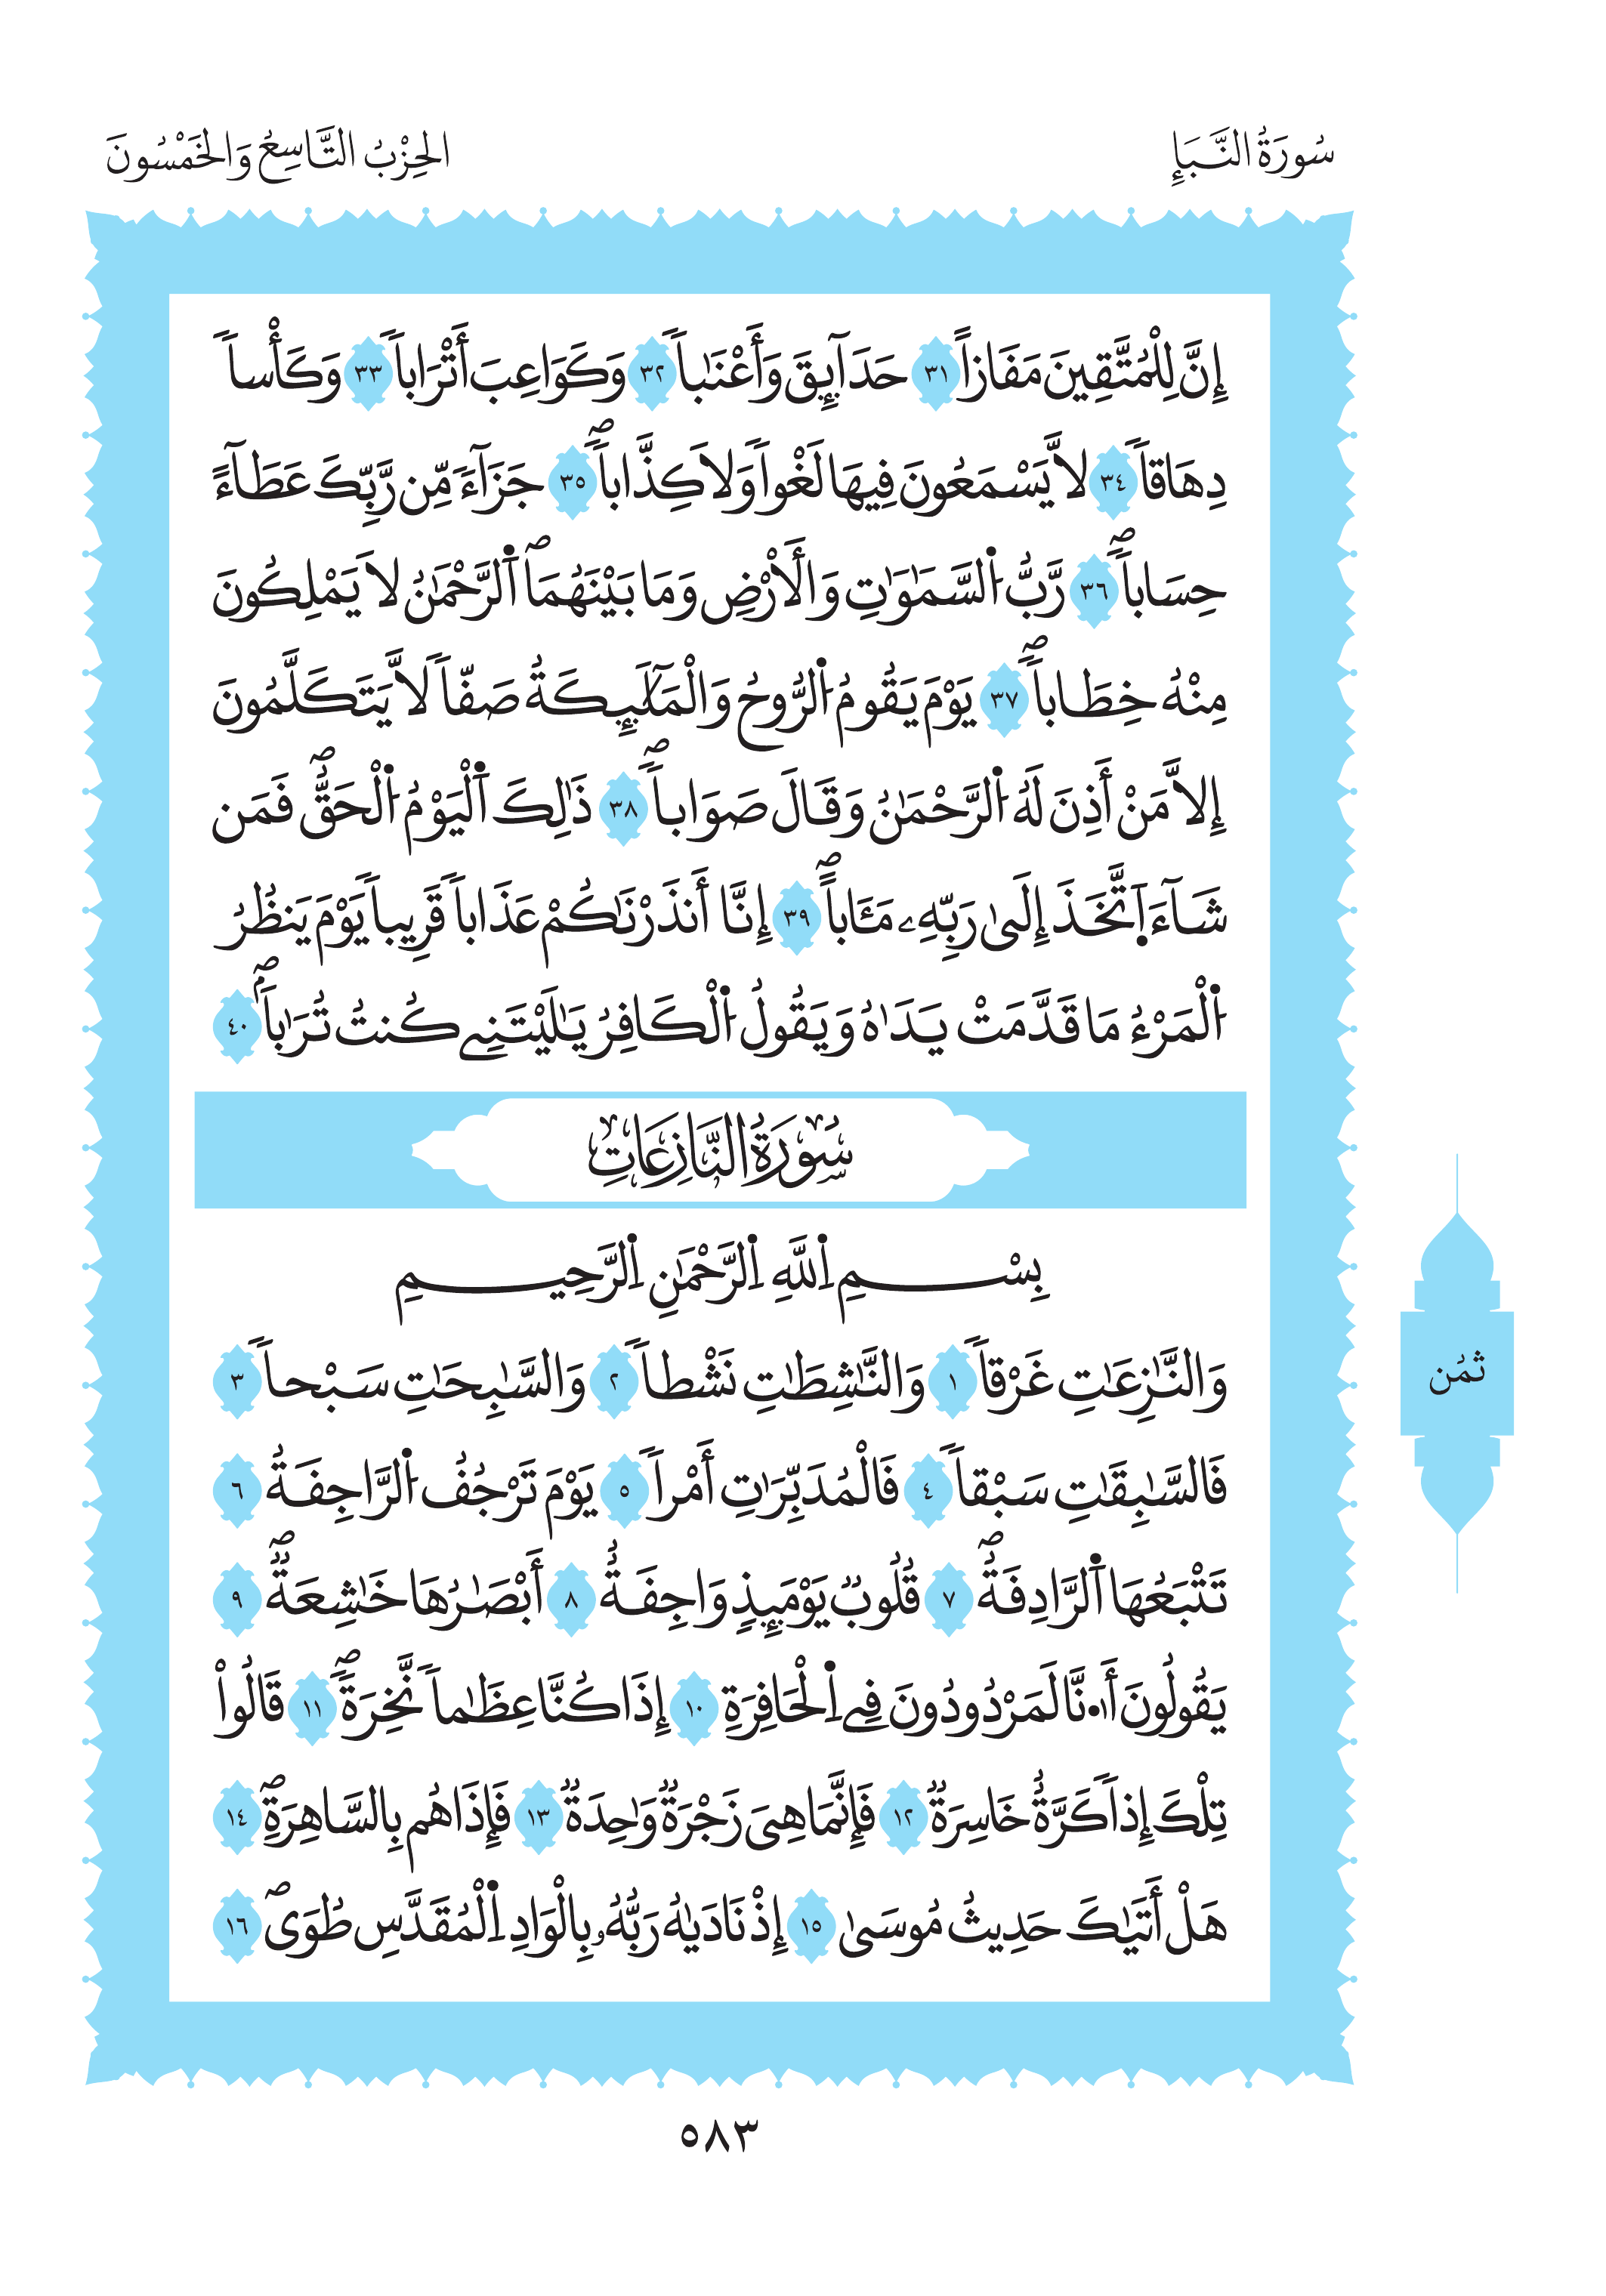 سُورَةُ النَّبَإِ
الحِزْبُ التَّاسِعُ وَالخَمْسُونَ
إِنَّ لِلْمُتَّقِينَ مَفَازاً ٣١ حَدَآئِقَ وَأَعْنَٰباً ٣٢ وَكَوَاعِبَ أَتْرَاباً ٣٣ وَكَأْساً
دِهَاقاً ٣٤ لاَّ يَسْمَعُونَ فِيهَا لَغْواً وَلاَ كِذَّاباًۖ ٣٥ جَزَآءً مِّن رَّبِّكَ عَطَآءً
حِسَاباًۖ ٣٦ رَّبُّ اُ۬لسَّمَٰوَٰتِ وَالَارْضِ وَمَا بَيْنَهُمَاۖ اَ۬لرَّحْمَٰنُ لَا يَمْلِكُونَ
مِنْهُ خِطَاباًۖ ٣٧ يَوْمَ يَقُومُ اُ۬لرُّوحُ وَالْمَلَٰٓئِكَةُ صَفّاً لاَّ يَتَكَلَّمُونَ
إِلاَّ مَنْ أَذِنَ لَهُ اُ۬لرَّحْمَٰنُ وَقَالَ صَوَاباًۖ ٣٨ ذَٰلِكَ اَ۬لْيَوْمُ اُ۬لْحَقُّۖ فَمَن
شَآءَ اَ۪تَّخَذَ إِلَىٰ رَبِّهِۦ مَـَٔاباًۖ ٣٩ إِنَّا أَنذَرْنَٰكُمْ عَذَاباً قَرِيباً يَوْمَ يَنظُرُ
اُ۬لْمَرْءُ مَا قَدَّمَتْ يَدَاهُ وَيَقُولُ اُ۬لْكَافِرُ يَٰلَيْتَنِے كُنتُ تُرَٰباَۢۖ ٤٠
سُورَةُ النَّازِعَاتِ
بِسْمِ اِ۬للَّهِ اِ۬لرَّحْمَٰنِ اِ۬لرَّحِيمِ
وَالنَّٰزِعَٰتِ غَرْقاً ١ وَالنَّٰشِطَٰتِ نَشْطاً ٢ وَالسَّٰبِحَٰتِ سَبْحاً ٣
فَالسَّٰبِقَٰتِ سَبْقاً ٤ فَالْمُدَبِّرَٰتِ أَمْراً ٥ يَوْمَ تَرْجُفُ اُ۬لرَّاجِفَةُ ٦
تَتْبَعُهَا اَ۬لرَّادِفَةُۖ ٧ قُلُوبٌ يَوْمَئِذٍ وَاجِفَةٌ ٨ أَبْصَٰرُهَا خَٰشِعَةٌۖ ٩
يَقُولُونَ أَ۟نَّا لَمَرْدُودُونَ فِے اِ۬لْحَافِرَةِ ١٠ إِذَا كُنَّا عِظَٰماً نَّخِرَةًۖ ١١ قَالُواْ
تِلْكَ إِذاً كَرَّةٌ خَاسِرَةٌ ١٢ فَإِنَّمَا هِىَ زَجْرَةٌ وَٰحِدَةٌ ١٣ فَإِذَا هُم بِالسَّاهِرَةِۖ ١٤
هَلْ أَتَيٰكَ حَدِيثُ مُوسَىٰ ١٥ إِذْ نَادَيٰهُ رَبُّهُۥ بِالْوَادِ اِ۬لْمُقَدَّسِ طُوَىۖ ١٦
ثُمُن
٥٨٣